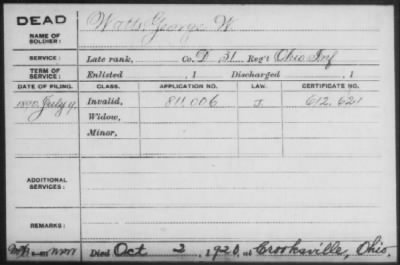 DEAD
NAME OF SOLDIER:
Watts, George W.
SERVICE:
Late rank, Co. D 31 Reg't Ohio Inf
TERM OF SERVICE:
Enlisted , 1 Discharged , 1
DATE OF FILING. CLASS. APPLICATION NO. LAW. CERTIFICATE NO.
1890, July 9. Invalid, 811,006 J. 612,621
Widow,
Minor,
ADDITIONAL SERVICES:
REMARKS:
Died Oct 2, 1920, at Crooksville, Ohio.